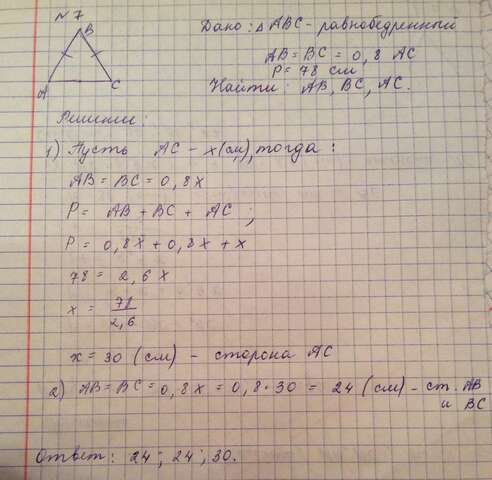 N 7
B
A
C
Дано: △ ABC - равнобедренный
AB = BC = 0,8 AC
P = 78 см.
Найти: AB, BC, AC.
Решение:
1) Пусть AC - x (см), тогда:
AB = BC = 0,8x
P = AB + BC + AC ;
P = 0,8x + 0,8x + x
78 = 2,6 x
x = 78/2,6
x = 30 (см) - сторона AC
2) AB = BC = 0,8x = 0,8 · 30 = 24 (см) - ст. AB
и BC
Ответ: 24 ; 24 ; 30.